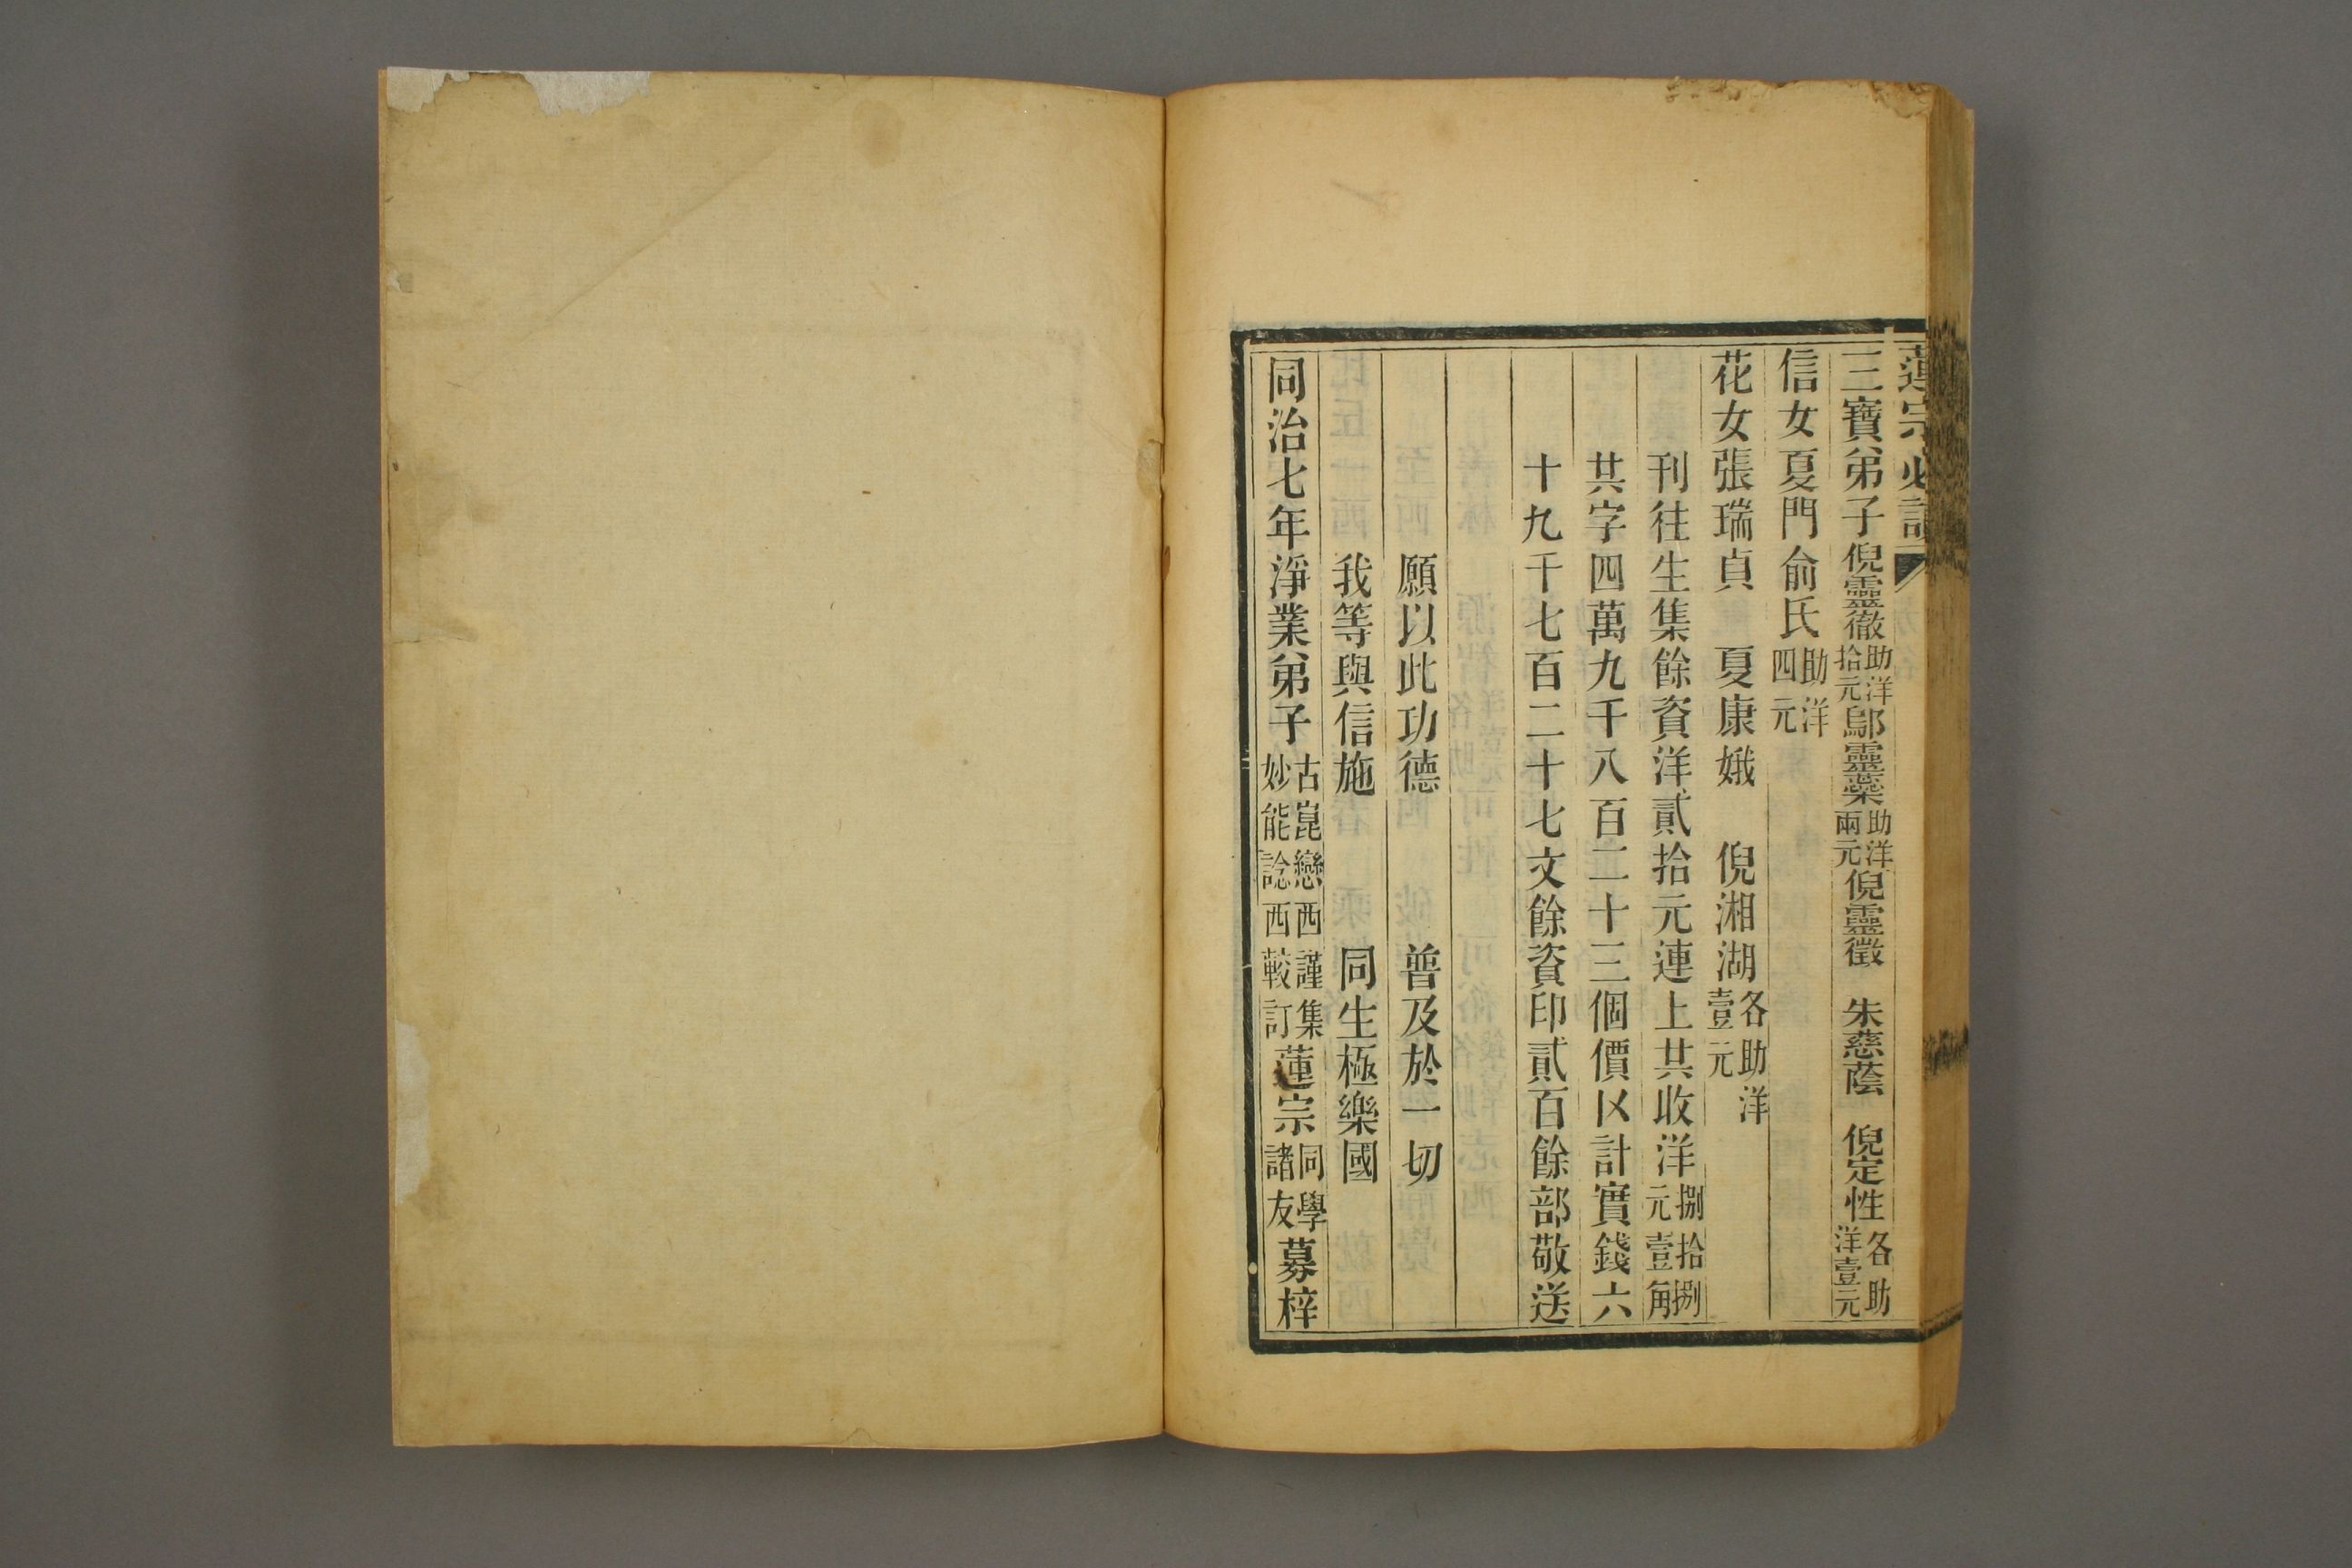 蓮宗必讀
三寶弟子倪靈徹助洋拾元鄔靈蘂助洋兩元倪靈徵 朱慈蔭 倪定性各助洋壹元
信女夏門俞氏助洋四元
花女張瑞貞 夏康娥 倪湘湖各助洋壹元
刊往生集餘資洋貳拾元連上共收洋捌拾捌元壹角
共字四萬九千八百二十三個價〤計實錢六
十九千七百二十七文餘資印貳百餘部敬送
願以此功德 普及於一切
我等與信施 同生極樂國
同治七年淨業弟子古崑戀西謹集妙能諗西較訂蓮宗同學諸友募梓